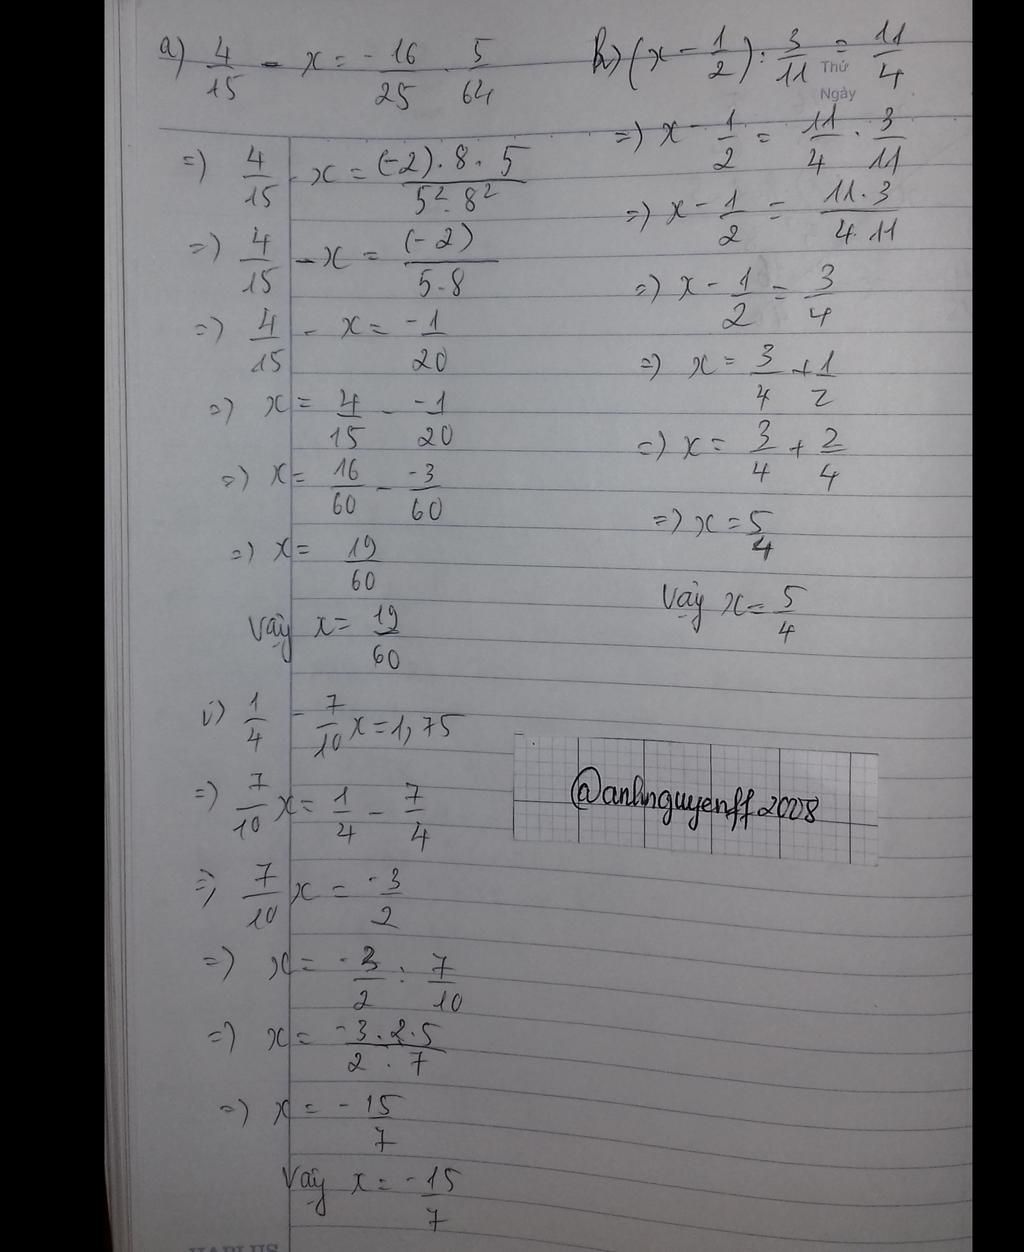 a) 4/15 - x = -16/25 . 5/64
=) 4/15 - x = (-2).8.5/5².8²
=) 4/15 - x = (-2)/5.8
=) 4/15 - x = -1/20
=) x = 4/15 - -1/20
=) x = 16/60 - -3/60
=) x = 19/60
Vậy x = 19/60
h) (x - 1/2) : 3/11 = 11/4
Thứ
Ngày
=) x - 1/2 = 11/4 . 3/11
=) x - 1/2 = 11.3/4.11
=) x - 1/2 = 3/4
=) x = 3/4 + 1/2
=) x = 3/4 + 2/4
=) x = 5/4
Vậy x = 5/4
i) 1/4 - 7/10 x = 1,75
=) 7/10 x = 1/4 - 7/4
=) 7/10 x = -3/2
=) x = -3/2 : 7/10
=) x = -3.2.5/2.7
=) x = -15/7
Vậy x = -15/7
@anhnguyenff2008